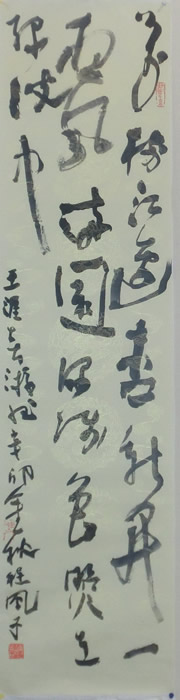 萬樹江邊杏新開一
夜風滿園深淺色照在
綠波中
王涯春游曲辛卯年秋